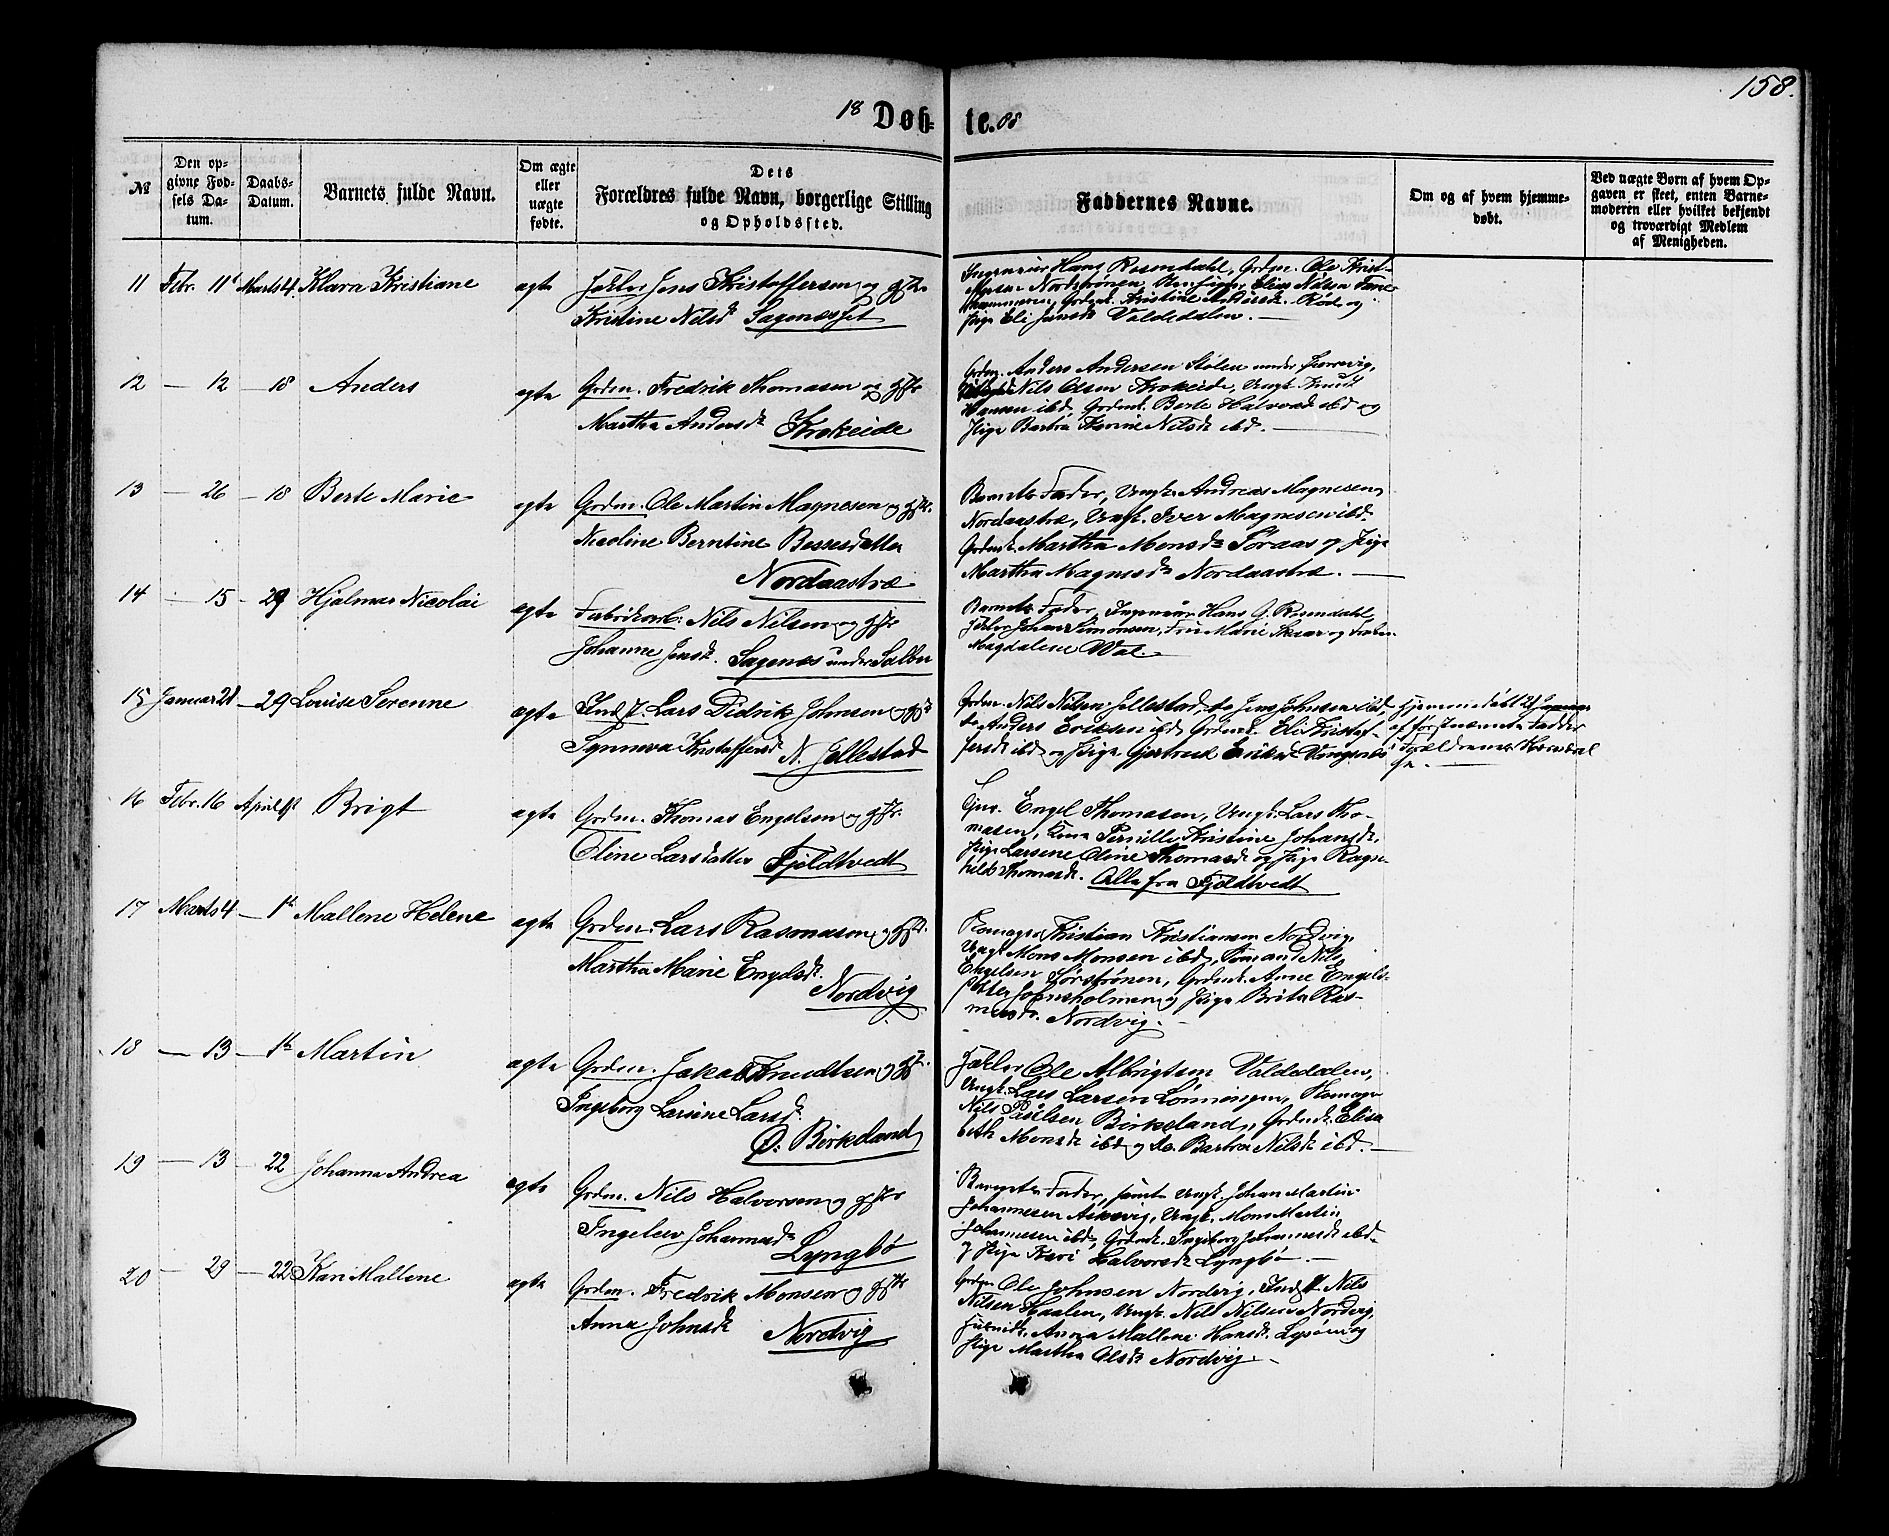 158.
18 Døb- te. 68
№
Den op-
givne Fød-
sels Da-
tum.
Daabs-
Datum.
Barnets fulde Navn.
Om ægte
eller
uægte
fødte.
Dets
Forældres fulde Navn, borgerlige Stilling
og Opholdssted.
Faddernes Navne.
Om og af hvem hjemme-
døbt.
Ved uægte Børn af hvem Op-
gaven er skeet, enten Barne-
moderen eller hvilket bekjendt
og troværdigt Medlem
af Menigheden.
11 Febr. 11te Marts 4. Klara Kristiane ægte
Jens Kristoffersen og
Kristine Nilsd. Sagenæsset
Ingeniør Hans Rosendahl, Grdm. Ole Krist-
Nordstrønen, Elias Nilsen
Grdmk. Kristine Rød og
Pige Eli Jensd. Valdedalen. —
12 — 12 — 18 Anders ægte
Grdm. Fredrik Thomasen og gfte
Martha Andersd. Krokeide
Grdm. Anders Andersen Stølen under
Nils Olsen Krokeide, Ungk. Knud
Hansen ibd, Grdmk. Berte Halvorsd. ibd og
Pige Barbra Karine Nilsd. ibd. —
13 — 26 — 18 Berte Marie ægte
Grdm. Ole Martin Magnesen og gfte.
Nicoline Berntine Bessesdatter
Nordaastræ
Barnets Fader, Ungk. Andreas Magnesen,
Nordaastræ, Ungk. Iver Magnesen ibd.
Grdmk. Martha Monsd. Søraas og Pige
Martha Magnesd. Nordaastræ. —
14 — 15 — 29 Hjalmar Nicolai ægte
Fabrikarb. Nils Nilsen og gfte
Johanne Jensd. Sagenæs under Salbu
Barnets Fader, Ingeniør Hans G. Rosendahl,
Johan Simonsen, Fru Marie Skaar og
Magdalene Wal. —
15 Januar 21 — 29 Louise Serenne ægte
Indst. Lars Didrik Johnsen og gfte
Synneva Kristoffersd. N. Jellestad
Grdm. Nils Nilsen Jellestad, do Jens Johnsen ibd,
do Anders Eriksen ibd, Grdmk. Eli Kristof-
fersd. ibd og Pige Gjertrud Eriksd.
Hjemmedøbt 21 Januar
af førstnævnte Fadder
16 Febr. 16 April 1st Brigt ægte
Grdm. Thomas Engelsen og gfte.
Oline Larsdatter Fjeldtvedt
Engel Thomasen, Ungk. Lars Tho-
masen, Kona Pernille Kristine Johansd.
Pige Larsene Oline Thomasd. og Pige Ragn-
hild Thomasd. Alle fra Fjeldtvedt
17 Marts 4 — 1st Mallene Helene ægte
Grdm. Lars Rasmusen og gfte.
Martha Marie Engelsd.
Nordvig
Kristian Kristiansen Nordvig,
Ungk. Mons Monsen ibd, Nils
Engelsen Sørstrønen, Grdmk. Anne Engels-
og Pige Brita Ras-
musd. Nordvig. —
18 — 13 — 1st Martin ægte
Grdm. Jakob Knudtsen og gfte.
Ingeborg Larsine Larsd.
Ø. Birkeland
Ole Albrigtsen Valdedalen,
Ungk. Lars Larsen Lønningen,
Nils Birkeland, Grdmk. Elisa
beth Monsd. ibd og do. Barbra Nilsd. ibd. —
19 — 13 — 22 Johanna Andrea ægte
Grdm. Nils Halvorsen og gfte
Ingelev Johannesd.
Lyngbø
Barnets Fader, samt Ungk. Johan Martin
Johannesen Askevig, Ungk. Mons Martin
Johannesen ibd, Grdmk. Ingeborg Johannesd. ibd.
og Pige Kari Halvorsd. Lyngbø. —
20 — 29 — 22 Kari Mallene ægte
Grdm. Fredrik Monsen og gfte
Anna Johnsd. Nordvig
Grdm. Ole Johnsen Nordvig, Indst. Nils
Nilsen Haalen, Ungk. Nils Nilsen Nordvig,
Anna Mallene Hansd. Lysøen og
Pige Martha Olsd. Nordvig. —